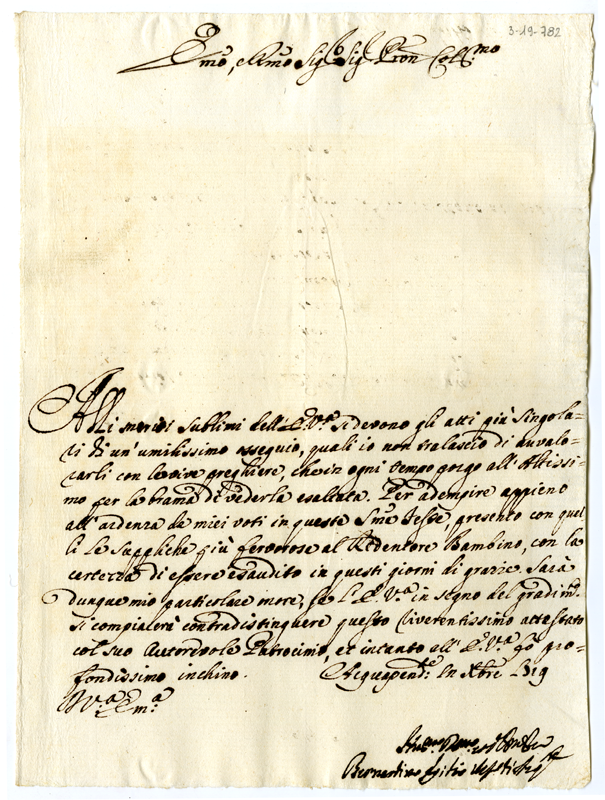 3-19-782
Emo, e Rmo Sigr Sigr Pron Coll:mo
Alli meriti sublimi dell'E.V.ra si devono gli atti più singola-
ri di un'umilissimo ossequio, quali io non tralascio di avvalo-
rarli con le vive preghiere, che in ogni tempo porgo all'Altissi-
mo per la brama di vederla esaltata. Per adempire appieno
all'ardenza de miei voti in queste Sme Feste, presento con quel
li le suppliche più fervorose al Redentore Bambino, con la
certezza di essere esaudito in questi giorni di grazie. Sarà
dunque mio particolare onore, se l'E.V.ra in segno del gradim.to
si compiacerà contradistinguere questo riverentissimo attestato
col suo Autorevole Patrocinio, et intanto all'E.V.ra fò pro-
fondissimo inchino. Acquapend.te In Xbre
V.ra Em.a
Bernardino